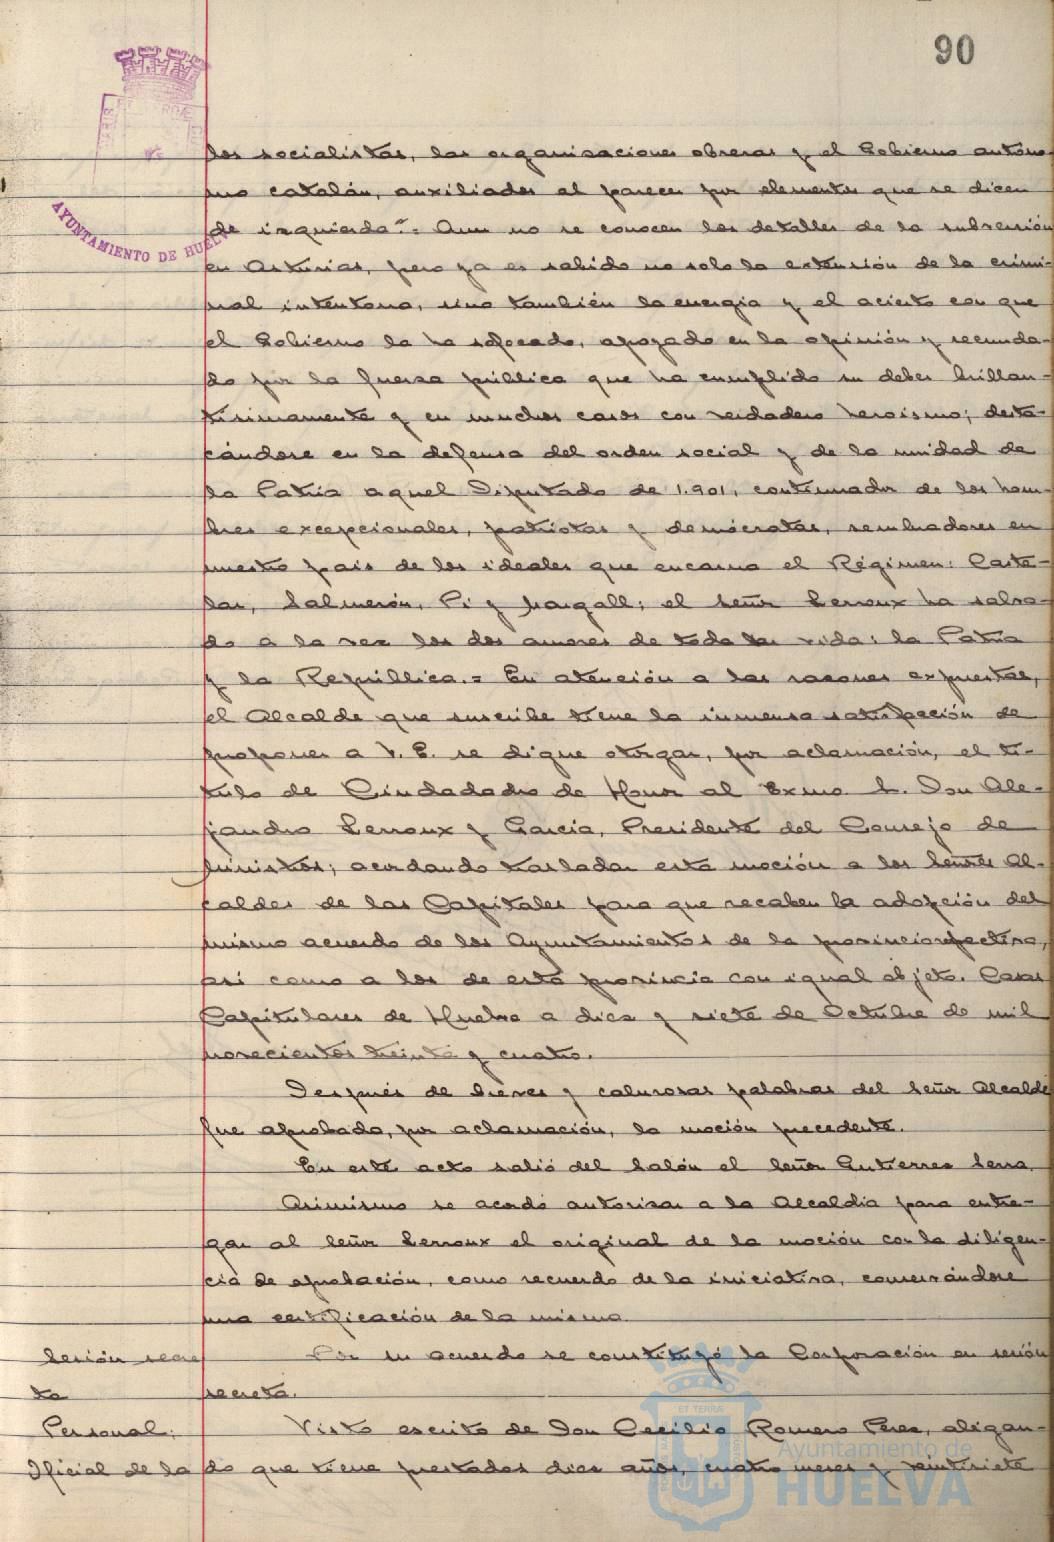 90
AYUNTAMIENTO DE HUELVA
los socialistas, las organisaciones obreras y el Gobierno autóno-
mo catalán, auxiliados al parecer por elementos que se dicen
de izquierda".= Aun no se conocen los detalles de la subversión
en Asturias, pero ya es sabido no solo la extensión de la crimi-
nal intentona, sino también la energia y el acierto con que
el Gobierno la ha sofocado, apoyado en la opinión y secunda-
do por la fuerza pública que ha cumplido su deber brillan-
tisimamente y en muchos casos con verdadero heroismo; desta-
cándose en la defensa del orden social y de la unidad de
la Patria aquel Diputado de 1.901, continuador de los hom-
bres excepcionales, patriotas y demócratas, sembradores en
nuestro pais de los ideales que encarna el Régimen: Caste-
lar, Salmerón, Pi y Margall; el señor Lerroux ha salva-
do a la vez los dos amores de toda su vida: la Patria
y la República.= En atención a las razones expuestas,
el Alcalde que suscribe tiene la inmensa satisfacción de
proponer a V. E. se digne otorgar, por aclamación, el tí-
tulo de Ciudadado de Honor al Exmo. Sr. Don Ale-
jandro Lerroux y García, Presidente del Consejo de
Ministros; acordando trasladar esta moción a los Señores Al-
caldes de las Capitales para que recaben la adopción del
mismo acuerdo de los Ayuntamientos de la provincia respectiva,
asi como a los de esta provincia con igual objeto. Casas
Capitulares de Huelva a diez y siete de Octubre de mil
novecientos treinta y cuatro.
Después de breves y calurosas palabras del Señor Alcalde
fue aprobada, por aclamación, la moción precedente.
En este acto salió del Salón el Señor Gutierrez Serra.
Asimismo se acordó autorizar a la Alcaldia para entre-
gar al Señor Lerroux el original de la moción con la diligen-
cia de aprobación, como recuerdo de la iniciativa, conservándose
una certificación de la misma.
Sesión secre
ta
Por su acuerdo se constituyó la Corporación en sesión
secreta.
Personal:
Oficial de la
Visto escrito de Don Cecilio Romero Perez, aligan-
do que tiene prestados diez años, cuatro meses y veintisiete
ET TERRÆ
Ayuntamiento de
HUELVA